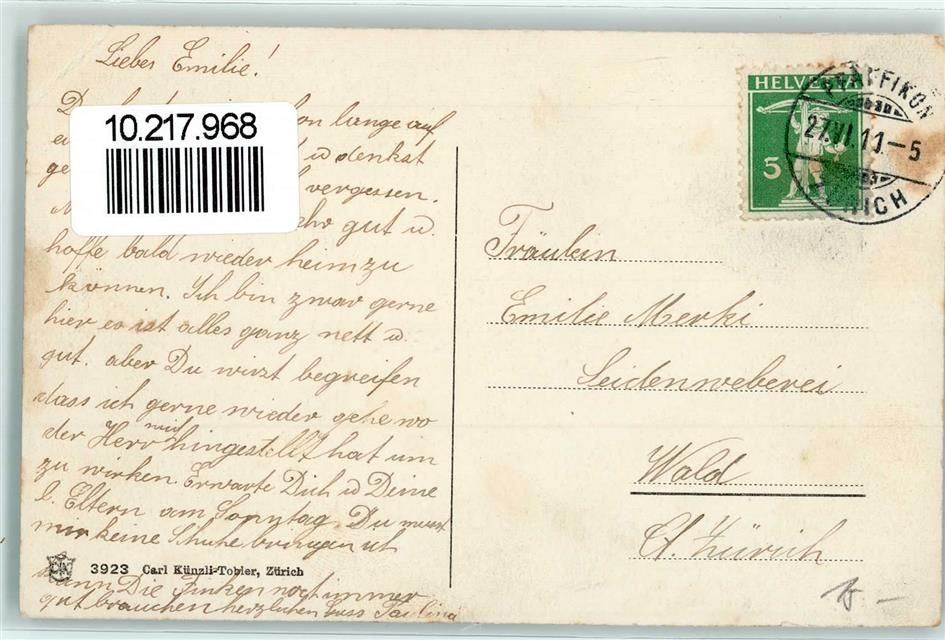 Liebes Emilie!
lange auf
10.217.968
u denkst
vergessen.
gut u.
hoffe bald wieder heim zu
können. Ich bin zwar gerne
hier es ist alles ganz nett u.
gut. aber Du wirst begreifen
dass ich gerne wieder gehe wo
der Herr mich hingestellt hat um
zu wirken. Erwarte Dich u Deine
l. Eltern am Sonntag. Du musst
mir keine Schuhe bringen ich
kann Die Finken noch immer
gut brauchen herzlichen Kuss Paulina
3923 Carl Künzli-Tobler, Zürich
HELVETIA
5
PFÄFFIKON
27.VI.11.-5
ZÜRICH
Fräulein
Emilie Merki
Seidenweberei
Wald
Ct. Zürich